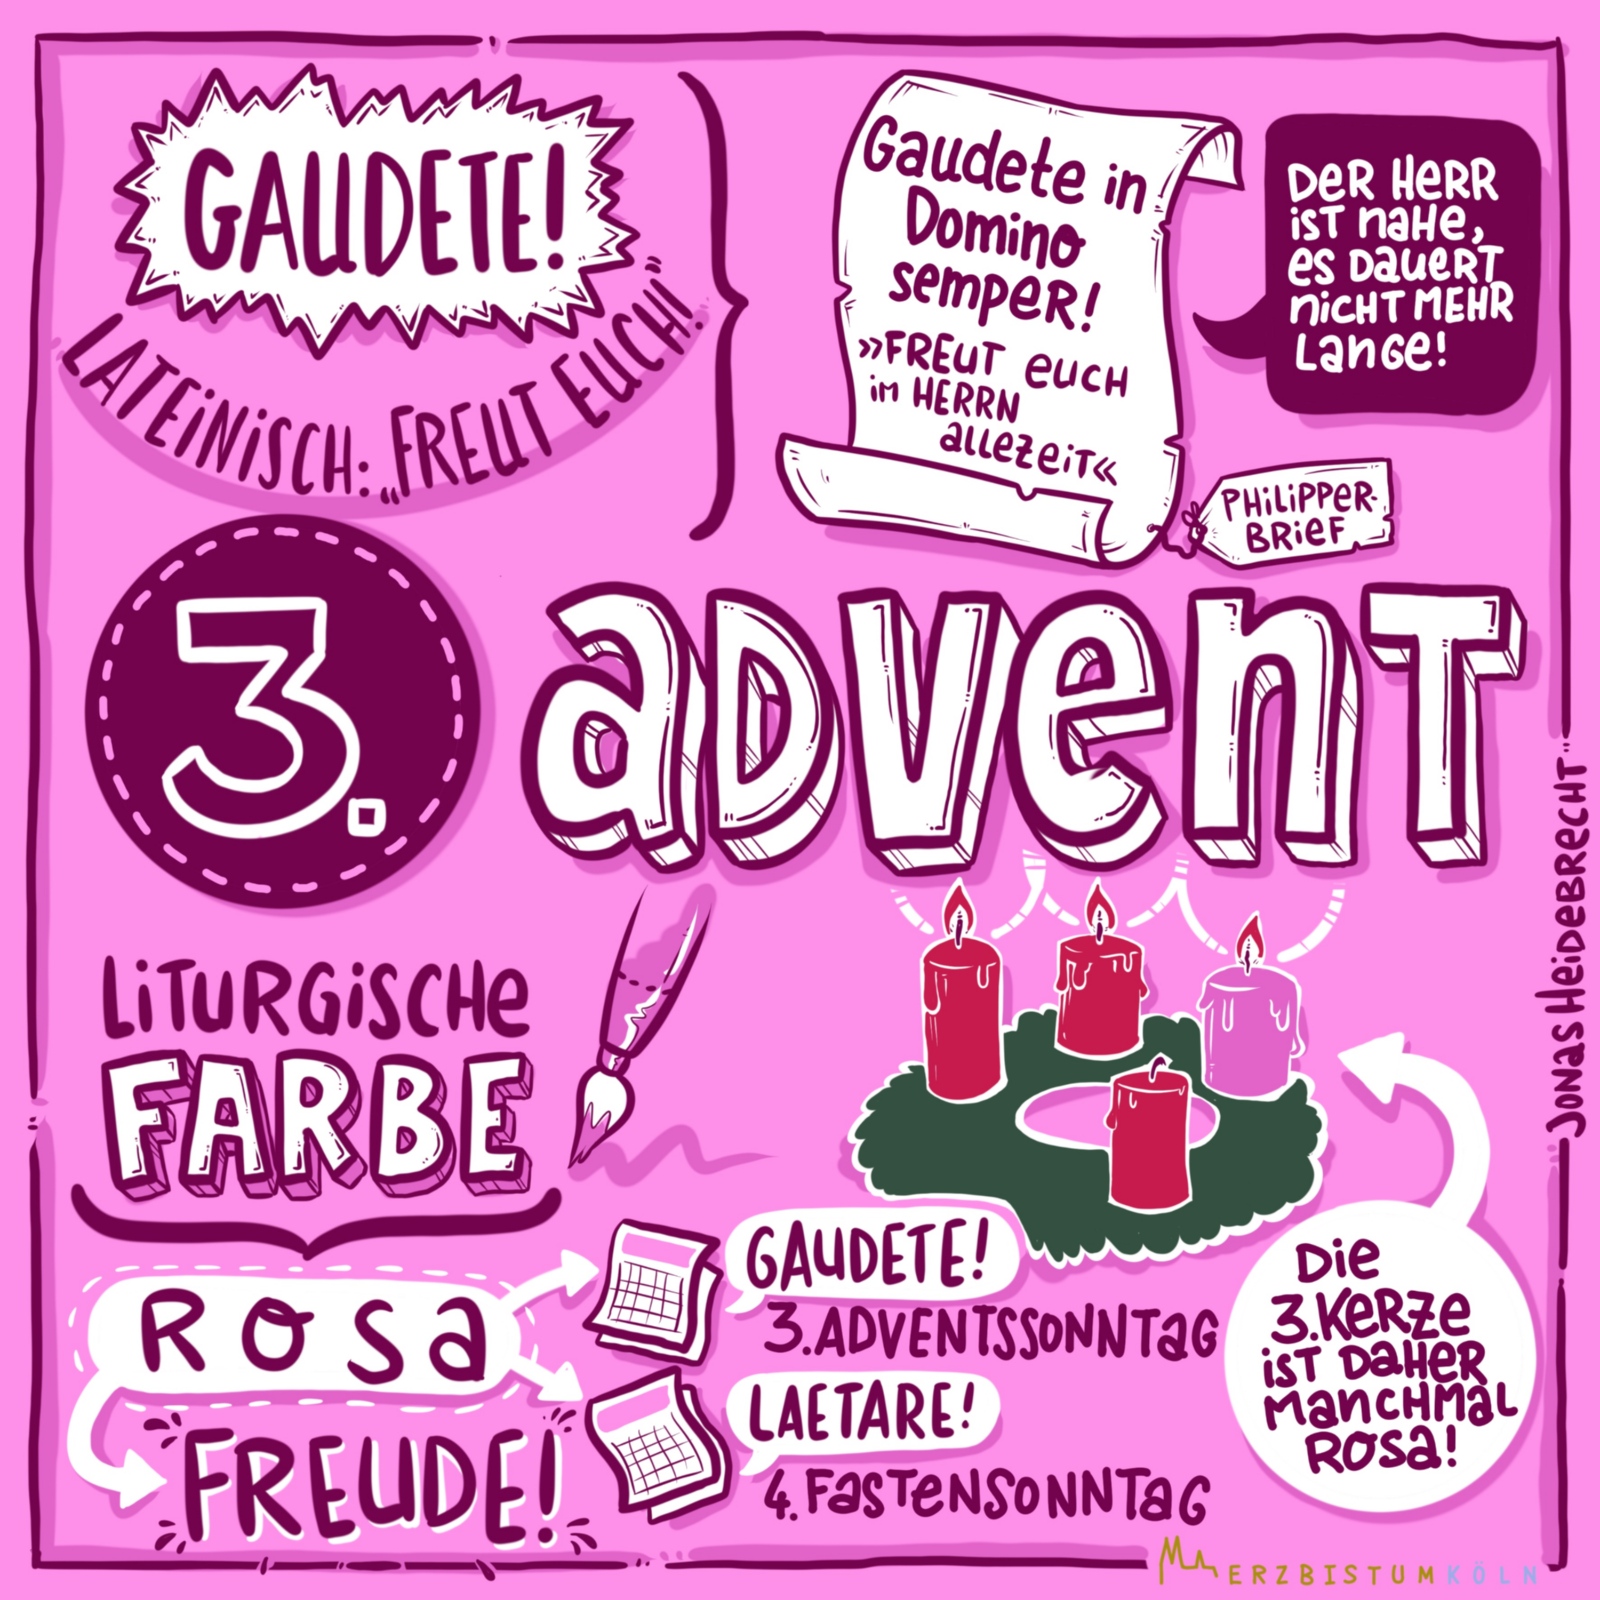 GAUDETE!
LATEINISCH: „FREUT EUCH!"
Gaudete in
Domino
semper!
»FREUT EUCH
im HERRN
allezeit«
PHILIPPER-
BRIEF
DER HERR
IST NAHE,
ES DAUERT
NICHT MEHR
LANGE!
3. ADVENT
LITURGISCHE
FARBE
ROSA
FREUDE!
GAUDETE!
3. ADVENTSSONNTAG
LAETARE!
4. FASTENSONNTAG
Die
3. KERZE
IST DAHER
MANCHMAL
ROSA!
JONAS HEIDEBRECHT
ERZBISTUMKÖLN